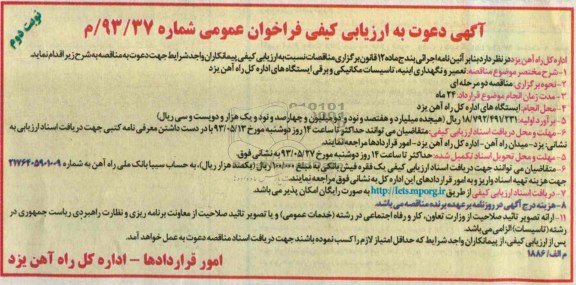 نوبت دوم
آگهی دعوت به ارزیابی کیفی فراخوان عمومی شماره ۹۳/۳۷/م
اداره کل راه آهن یزد در نظر دارد بنابر آئین نامه اجرائی بند ج ماده ۱۲ قانون برگزاری مناقصات نسبت به ارزیابی کیفی پیمانکاران واجد شرایط جهت دعوت به مناقصه به شرح زیر اقدام نماید.
۱- شرح مختصر موضوع مناقصه: تعمیر و نگهداری ابنیه، تاسیسات مکانیکی و برقی ایستگاه های اداره کل راه آهن یزد
۲- نحوه برگزاری: مناقصه دو مرحله ای
۳- مدت زمان انجام موضوع قرارداد: ۲۴ ماه
۴- محل انجام: ایستگاه های اداره کل راه آهن یزد
۵- برآورد اولیه: ۱۸/۷۹۲/۴۹۱/۲۳۱ ریال (هیجده میلیارد و هفتصد و نود و دو میلیون و چهارصد و نود و یک هزار و دویست و سی ریال)
۶- مهلت و محل دریافت اسناد ارزیابی کیفی: متقاضیان می توانند حداکثر تا ساعت ۱۴ روز دوشنبه مورخ ۹۳/۰۵/۱۳ با در دست داشتن معرفی نامه کتبی جهت دریافت اسناد ارزیابی به
نشانی: یزد- میدان راه آهن- اداره کل راه آهن یزد- امور قراردادها مراجعه نمایند.
۶- مهلت و محل تحویل اسناد تکمیل شده: حداکثر تا ساعت ۱۴ روز دوشنبه مورخ ۹۳/۰۵/۲۷ به نشانی فوق.
۶- متقاضیان می توانند جهت دریافت اسناد ارزیابی کیفی یک فقره فیش بانکی به مبلغ ریال (یکصد هزار ریال)، به حساب سیبا بانک ملی راه آهن به شماره ۲۱۷۶۴۰۵۹۰۱۰۰۹
جهت هزینه تهیه اسناد واریز و به امور قراردادهای این اداره کل به نشانی فوق مراجعه نمایند.
۷- دریافت اسناد ارزیابی کیفی از طریق http://iets.mporg.ir به صورت رایگان امکان پذیر می باشد.
۸- هزینه درج آگهی در روزنامه بر عهده برنده مناقصه می باشد.
۱۱- ارائه تصویر تائید صلاحیت از وزارت تعاون، کار و رفاه اجتماعی در رشته (خدمات عمومی) و یا تصویر تائید صلاحیت از معاونت برنامه ریزی و نظارت راهبردی ریاست جمهوری در
رشته (تاسیسات) الزامی می باشد.
پس از ارزیابی کیفی، از پیمانکاران واجد شرایط که حداقل امتیاز لازم را کسب نموده باشند جهت دریافت اسناد مناقصه دعوت به عمل خواهد آمد.
م الف/ ۱۸۸۶
امور قراردادها - اداره کل راه آهن یزد